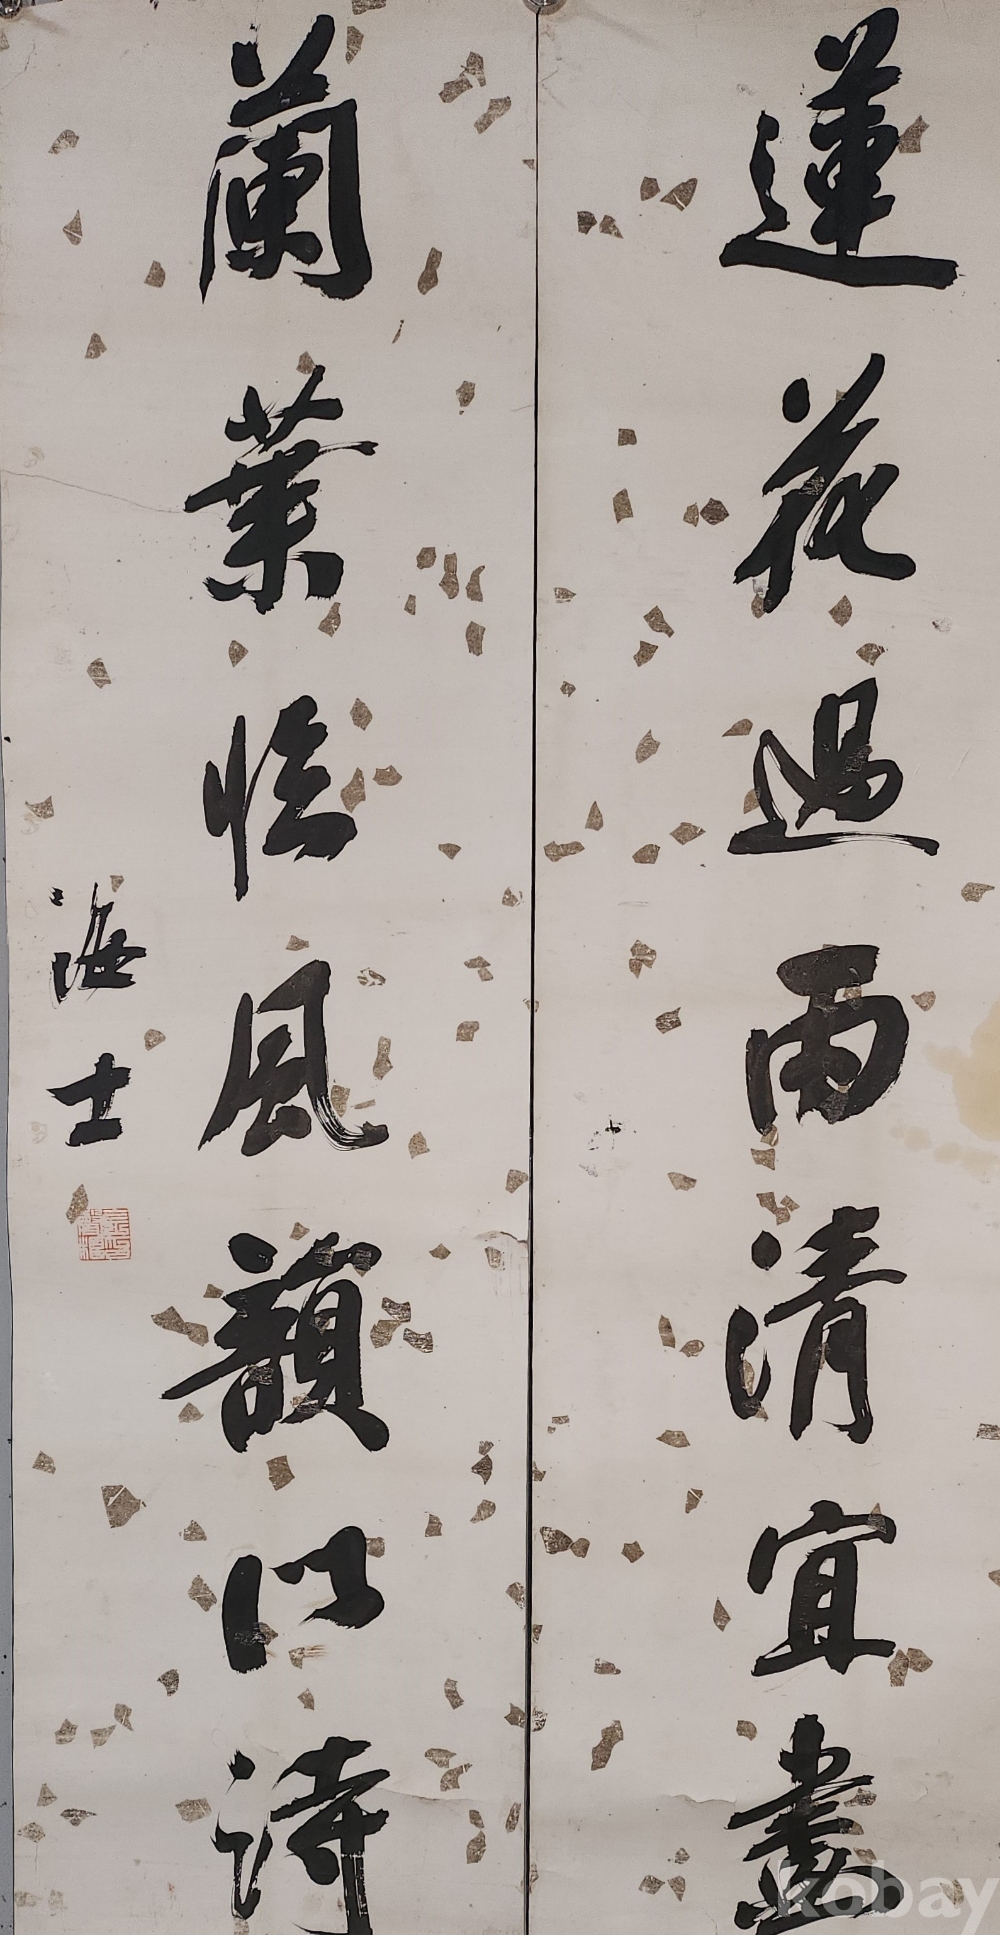 蓮花過雨清宜畫
蘭葉臨風韻似詩
海士
kobay